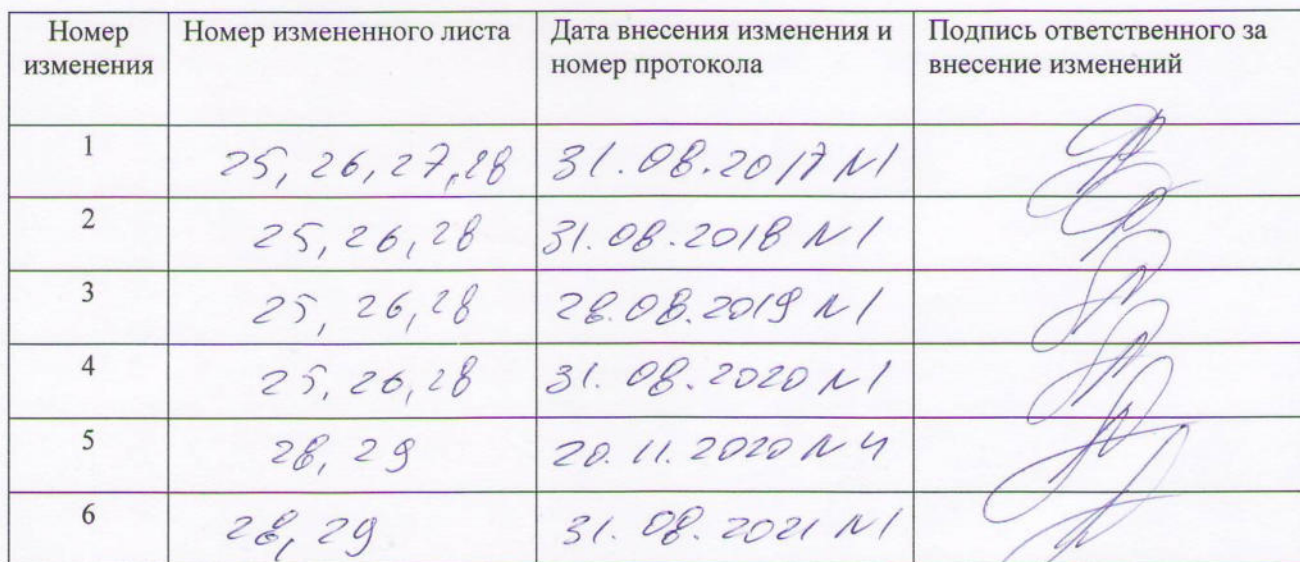 Номер изменения Номер измененного листа Дата внесения изменения и номер протокола Подпись ответственного за внесение изменений
1 25, 26, 27, 28 31.08.2017 N1
2 25, 26, 28 31.08.2018 N1
3 25, 26, 28 28.08.2019 N1
4 25, 26, 28 31.08.2020 N1
5 28, 29 20.11.2020 N4
6 28, 29 31.08.2021 N1